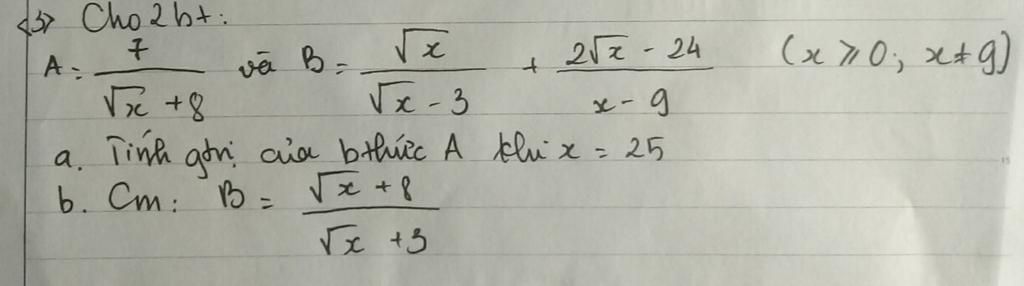 <3> Cho 2 bt:
A = 7/(√x + 8) và B = √x/(√x - 3) + (2√x - 24)/(x - 9) (x ≥ 0; x ≠ 9)
a. Tính gtrị của bthức A khi x = 25
b. Cm: B = (√x + 8)/(√x + 3)